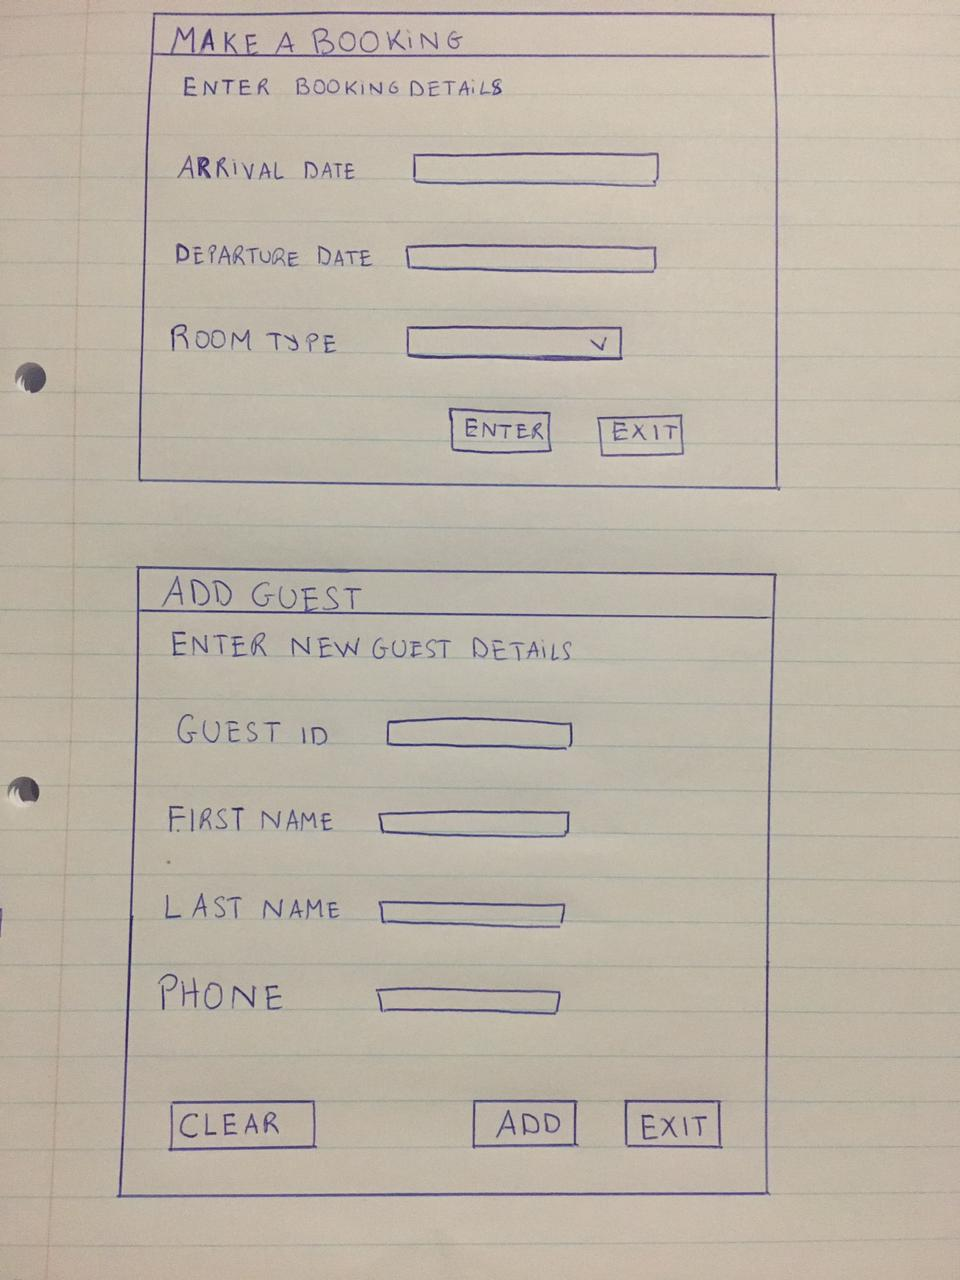 MAKE A BOOKING
ENTER BOOKING DETAILS
ARRIVAL DATE
DEPARTURE DATE
ROOM TYPE
ENTER EXIT
ADD GUEST
ENTER NEW GUEST DETAILS
GUEST ID
FIRST NAME
LAST NAME
PHONE
CLEAR ADD EXIT